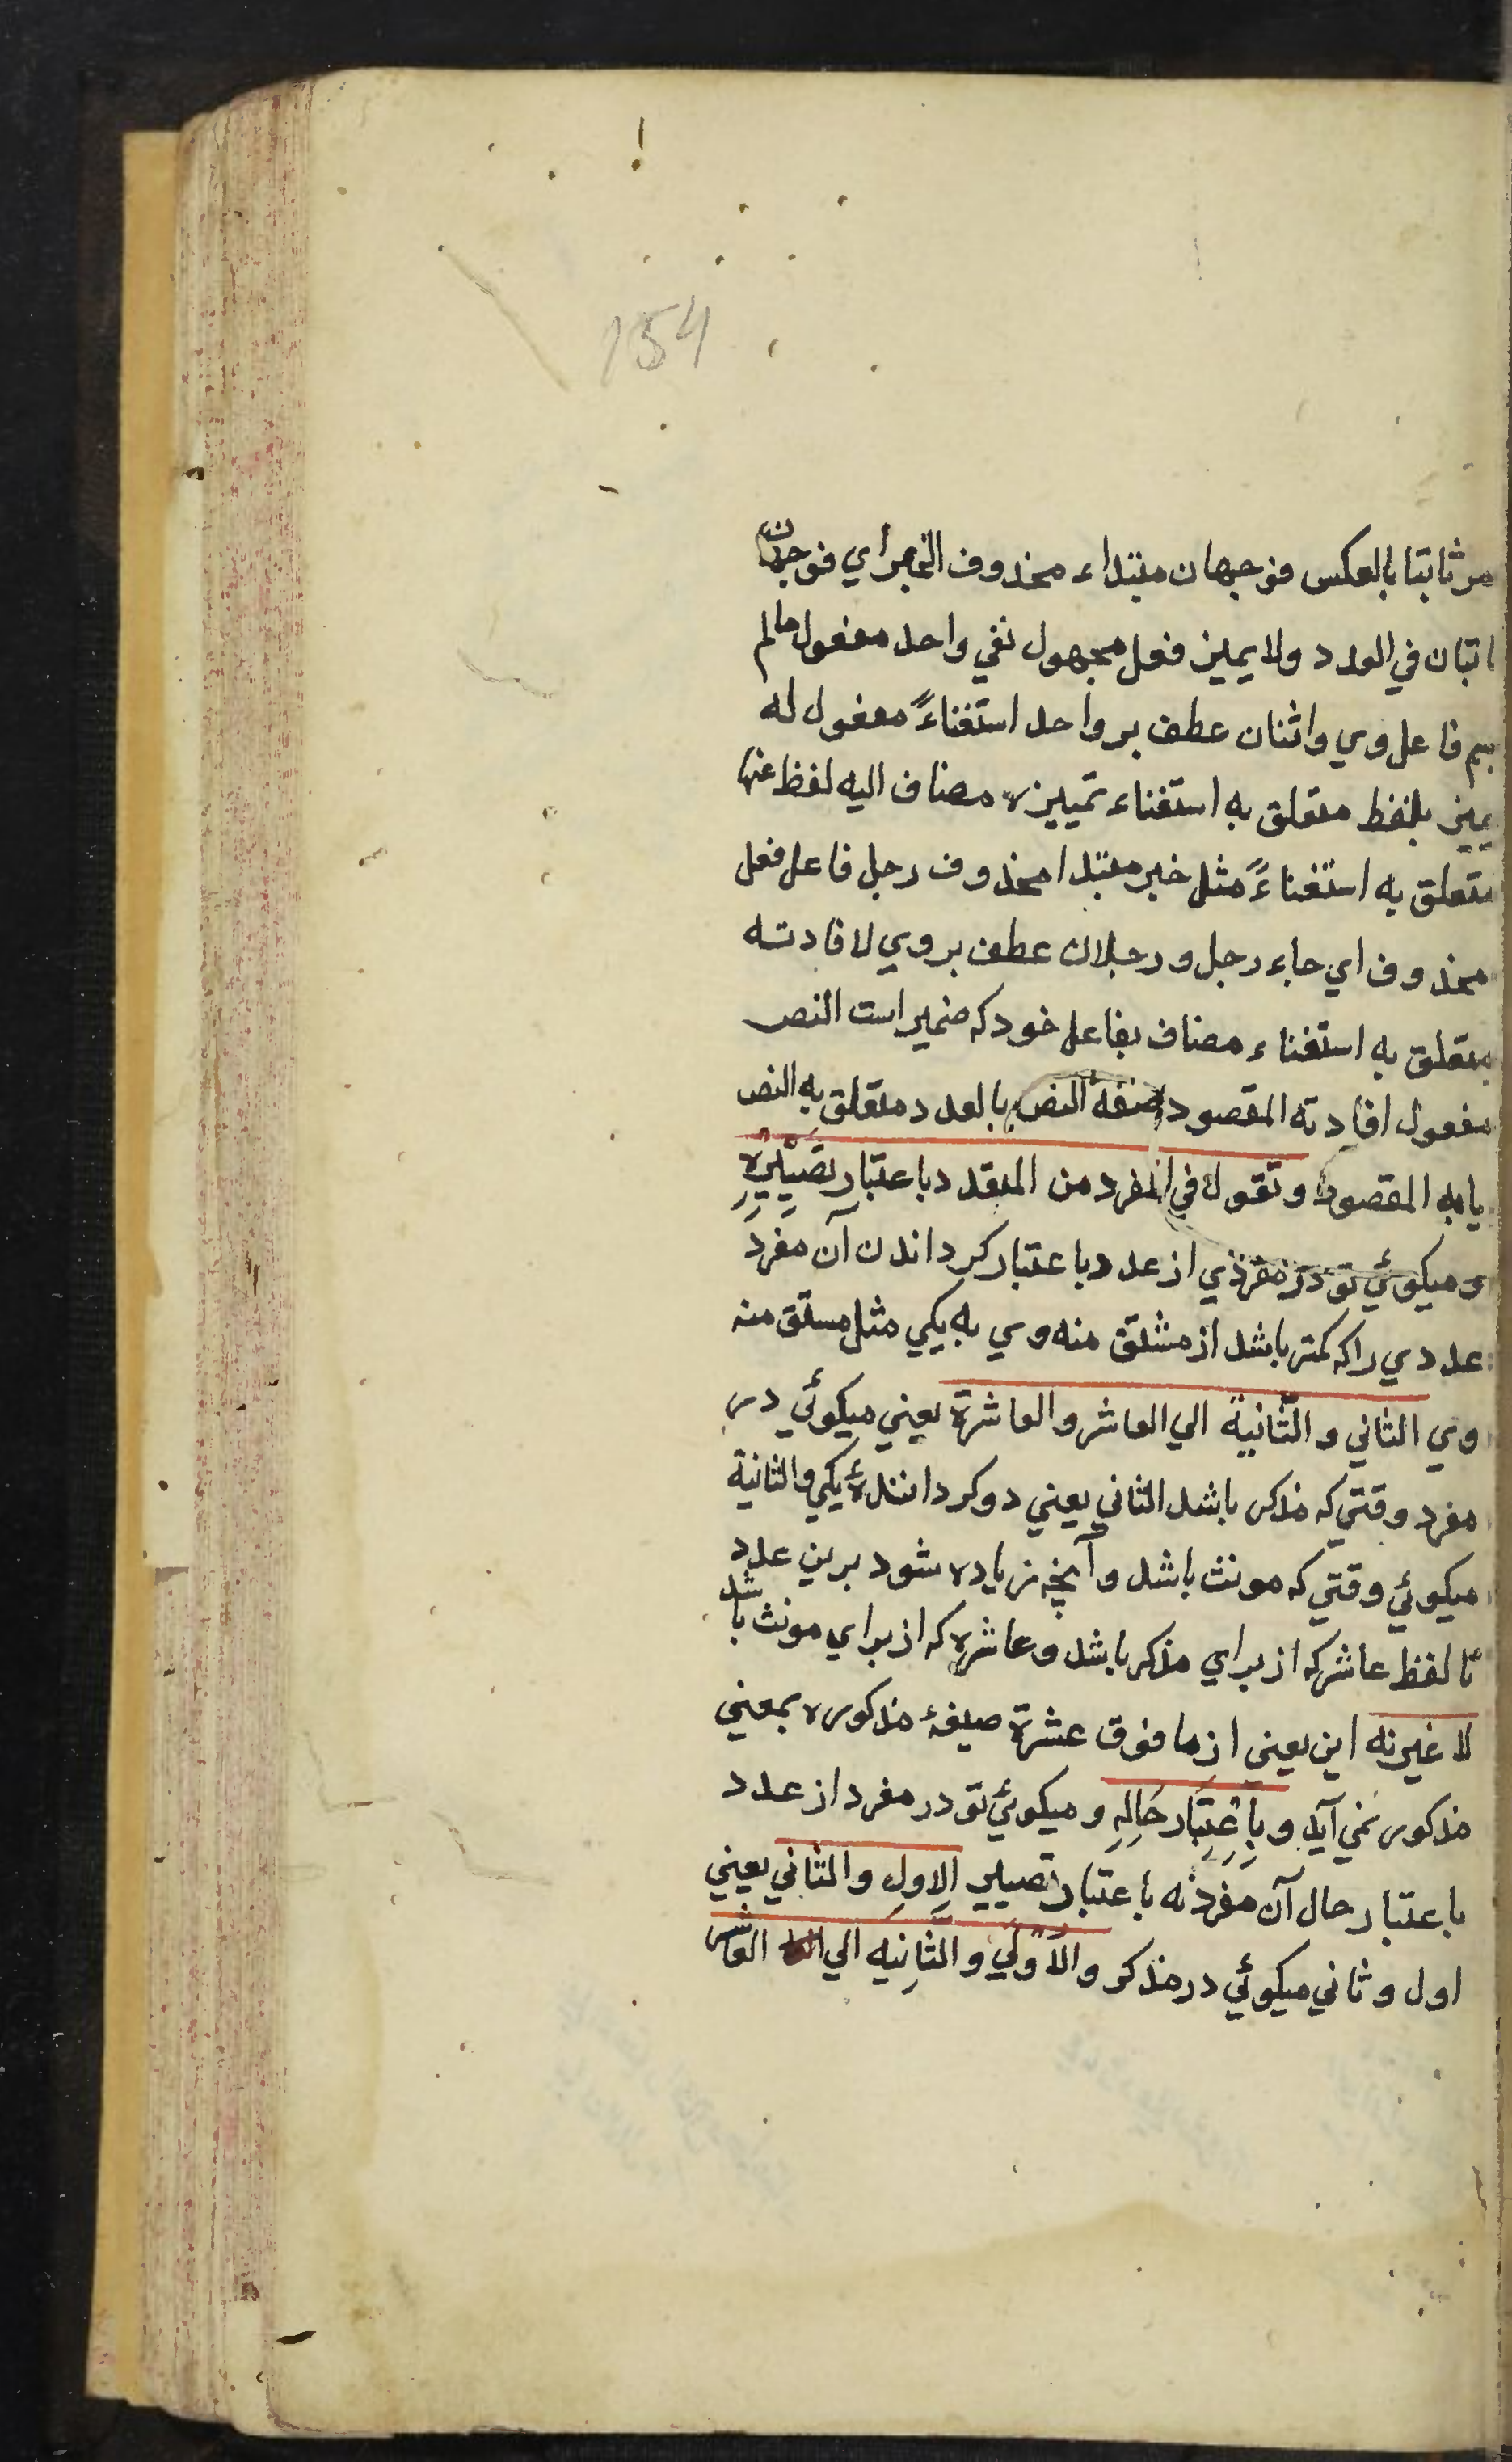 154
ثابتا بالعكس فوجهان مبتداء محذوف الخبر اي فوجهان
ثابتان في العدد ولا يميز فعل مجهول نفي واحد مفعول ما لم
يسم فاعل وي واثنان عطف بر واحد استغناءً مفعول له
يميز بلفظ متعلق به استغناء تمييزه مضاف اليه لفظ عنها
متعلق به استغناءً مثل خبر مبتدا محذوف رجل فاعل فعل
محذوف اي جاء رجل ورجلان عطف بر وي لافادته
متعلق به استغناء مضاف بفاعل خود كه ضمير است النص
مفعول افادته المقصود صفة النص بالعدد متعلق به النص
يا به المقصود وتقول في المفرد من المتعدد باعتبار تصييره
وميكوئي تو در مفردي از عدد باعتبار كرداندن آن مفرد
عددي را كه كمتر باشد از مشتق منه وي به يكي مثل مشتق منه
وي الثاني والثانية الي العاشر والعاشرة يعني ميكوئي در
مفرد وقتي كه مذكر باشد الثاني يعني دو كردانندۀ يكي والثانية
ميكوئي وقتي كه مونث باشد وآنچه زياده شود برين عدد
تا لفظ عاشر كه از براي مذكر باشد وعاشره كه از براي مونث باشد
لا غير نه اين يعني از ما فوق عشرة صيغۀ مذكوره بمعني
مذكور نمي آيد وبِاعْتِبَار حَالِهِ وميكوئي تو در مفرد از عدد
باعتبار حال آن مفرد نه باعتبار تصيير الاول والثاني يعني
اول وثاني ميكوئي در مذكر والاولي والثانيه الي العاشر